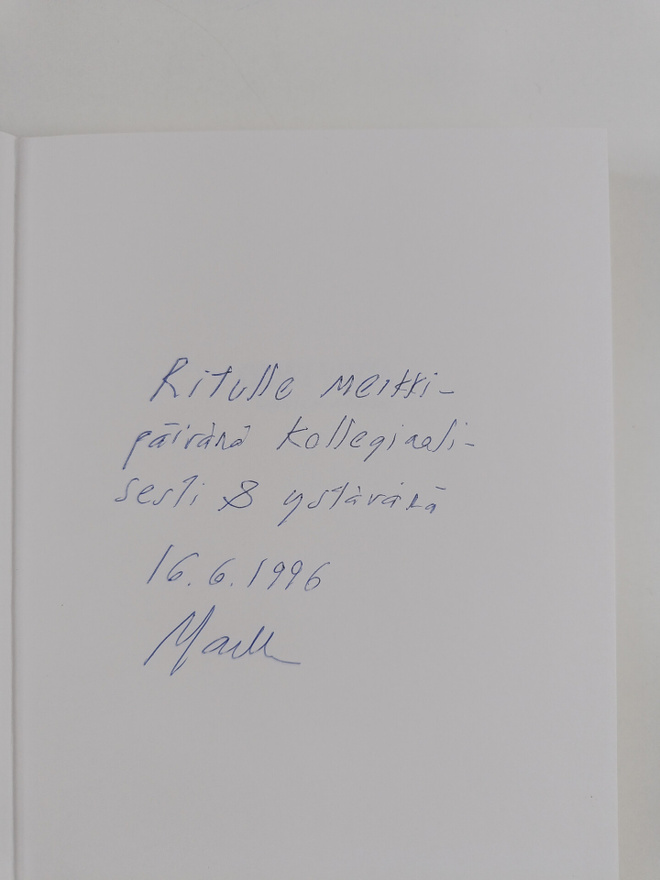 Ritulle merkki-
päivänä kollegiaali-
sesti & ystävänä
16.6.1996